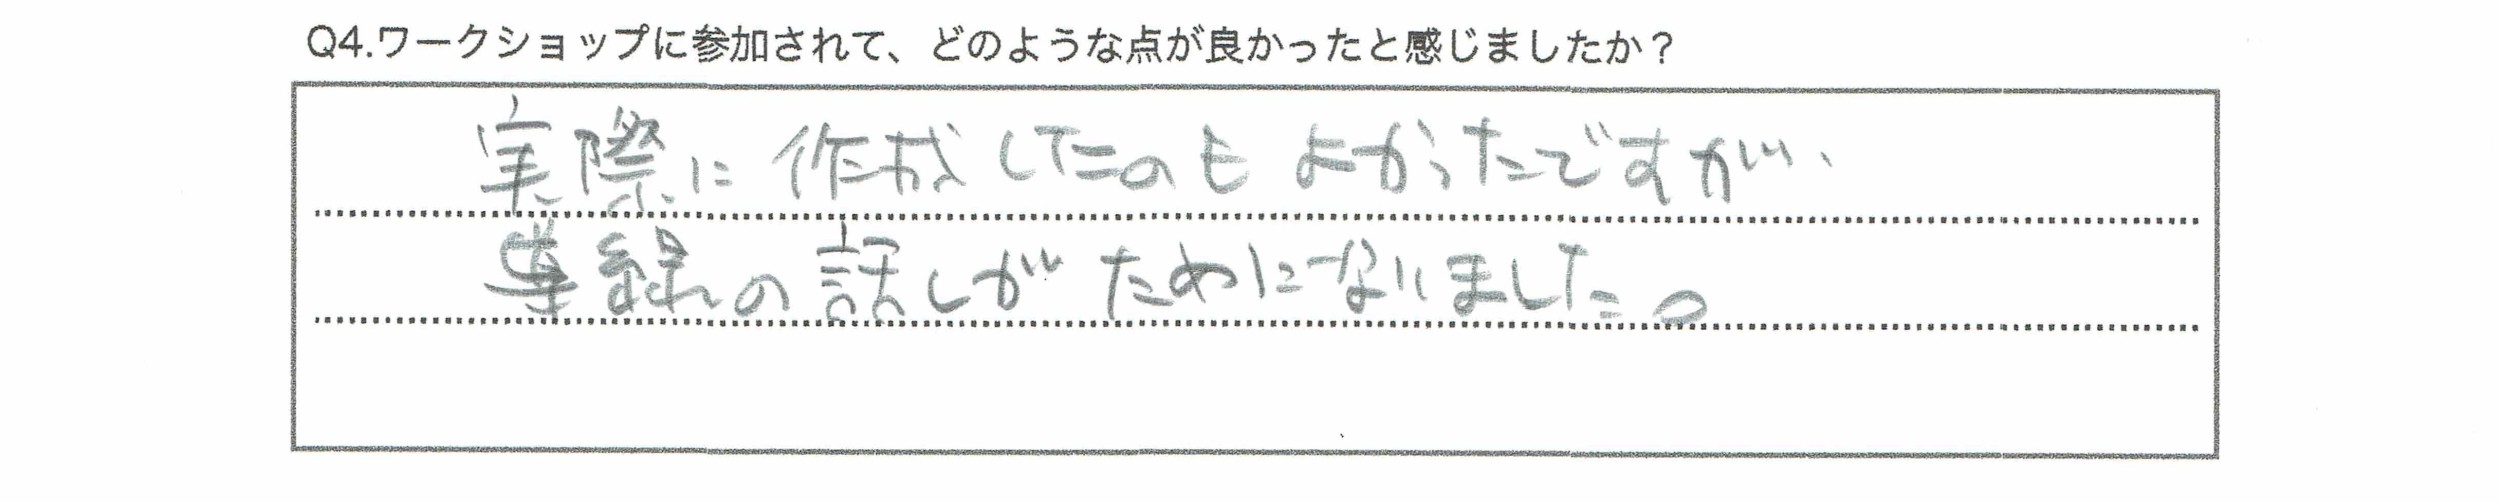 Q4.ワークショップに参加されて、どのような点が良かったと感じましたか？
実際に作成したのもよかったですが、
導線の話しがためになりました。